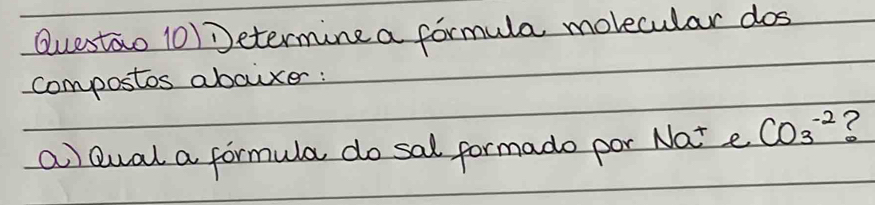 Questão 10) Determine a fórmula molecular dos
compostos abaixo:
a) Qual a fórmula do sal formado por Na⁺ e CO₃⁻²?